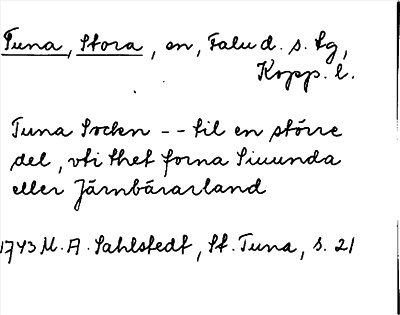 Tuna, Stora, en, Falu d. s. lg,
Kopp. l.
Tuna Sockn -- til en större
del, vti thet forna Siuunda
eller Järnbärarland
1743 M. A. Sahlstedt, St. Tuna, s. 21